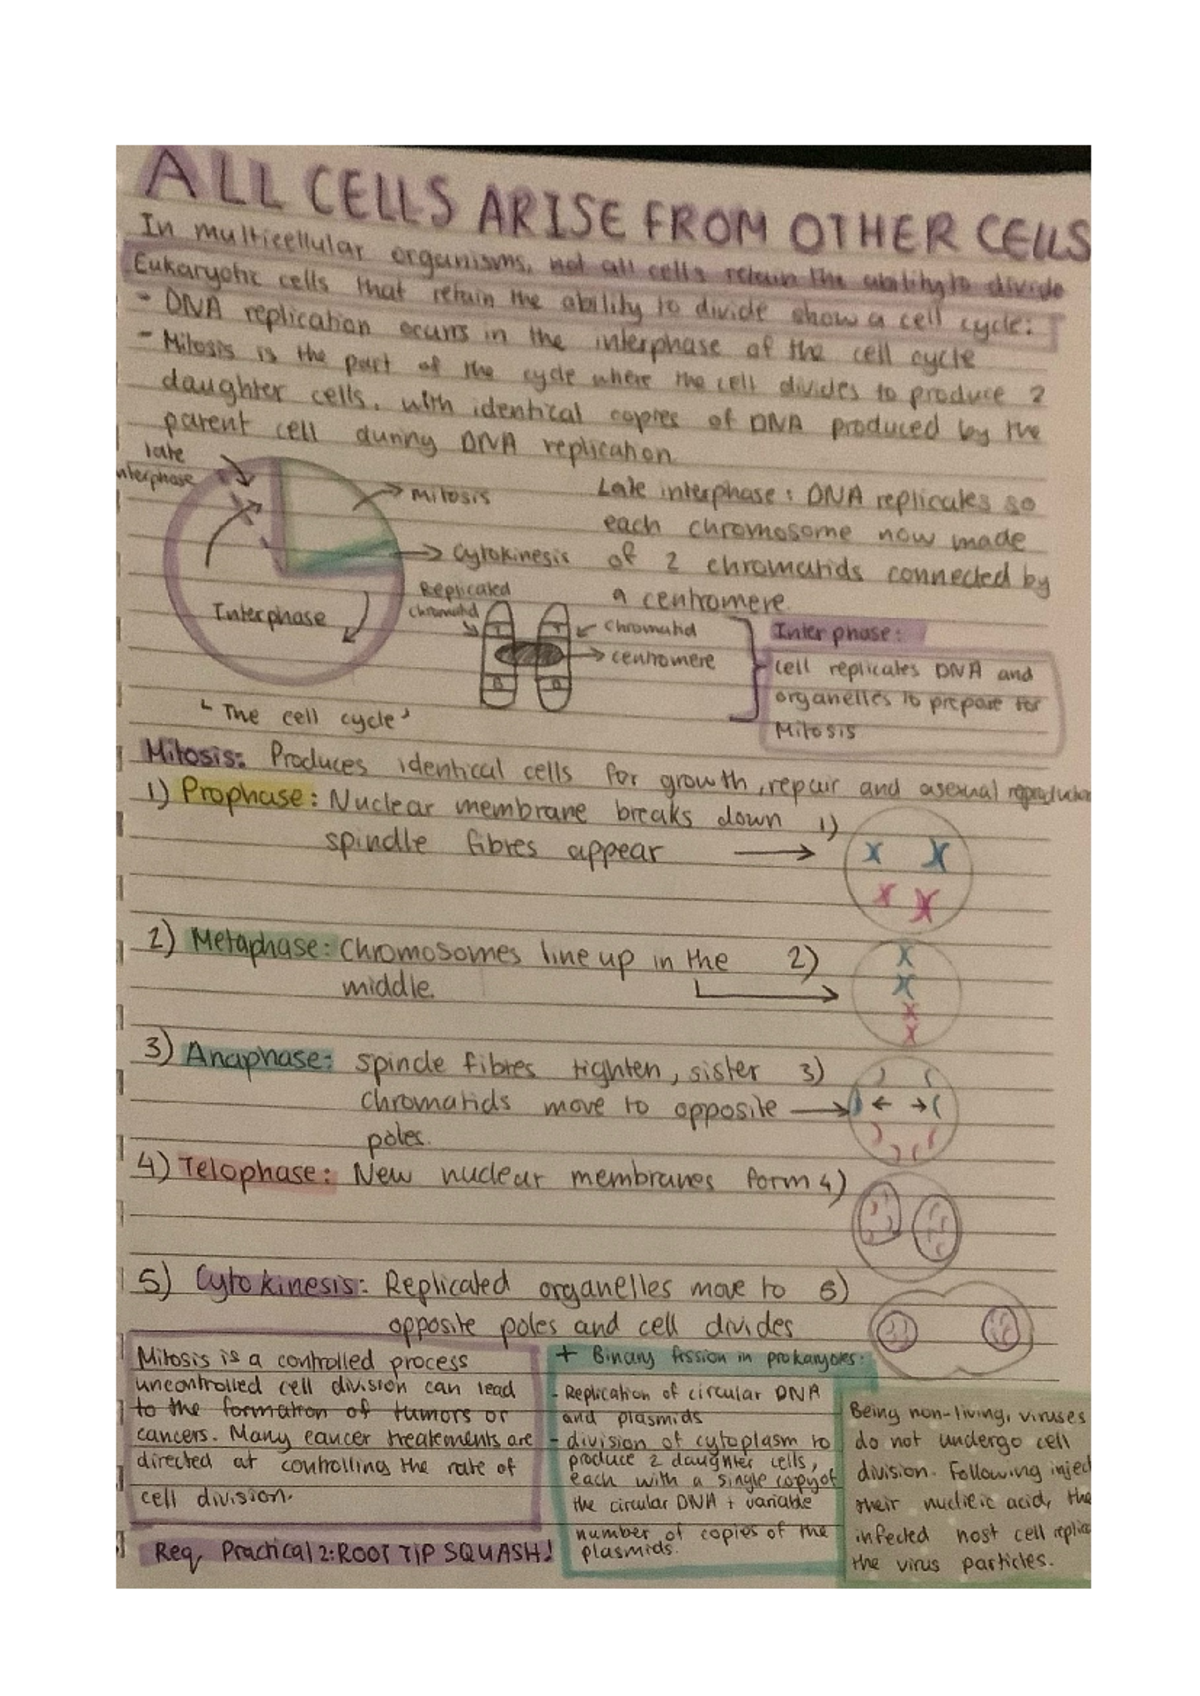 ALL CELLS ARISE FROM OTHER CELLS
In multicellular organisms, not all cells retain the ability to divide
Eukaryotic cells that retain the ability to divide show a cell cycle:
- DNA replication ocurrs in the interphase of the cell cycle
- Mitosis is the part of the cycle where the cell divides to produce 2
daughter cells, with identical copies of DNA produced by the
parent cell during DNA replication
late
nterphase
Mitosis
Cytokinesis
Interphase
"The cell cycle"
Late interphase: DNA replicates so
each chromosome now made
of 2 chromatids connected by
a centromere.
Replicated
chromatid
chromatid
centromere
Interphase:
cell replicates DNA and
organelles to prepare for
Mitosis
Mitosis: Produces identical cells for growth, repair and asexual reproduction
1) Prophase: Nuclear membrane breaks down 1)
spindle fibres appear
2) Metaphase: Chromosomes line up in the 2)
middle.
3) Anaphase: spindle fibres tighten, sister 3)
chromatids move to opposite
poles.
4) Telophase: New nuclear membranes form 4)
5) Cytokinesis: Replicated organelles move to 5)
opposite poles and cell divides
Mitosis is a controlled process
uncontrolled cell division can lead
to the formation of tumors or
cancers. Many cancer treatements are
directed at controlling the rate of
cell division.
Req Practical 2: ROOT TIP SQUASH!
+ Binary fission in prokaryotes:
- Replication of circular DNA
and plasmids
- division of cytoplasm to
produce 2 daughter cells,
each with a single copy of
the circular DNA + variable
number of copies of the
plasmids.
Being non-living, viruses
do not undergo cell
division. Following injec
their nucleic acid, the
infected host cell replica
the virus particles.